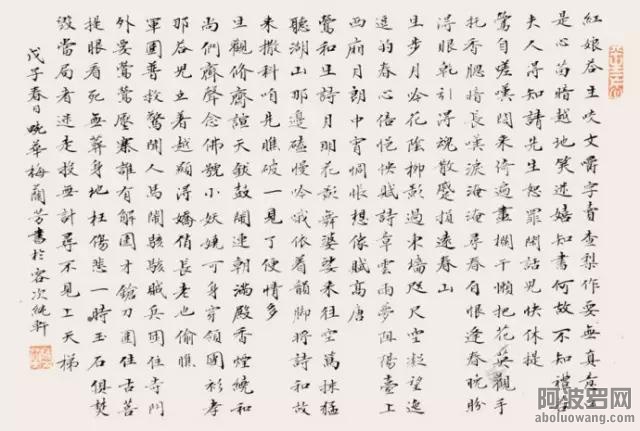 紅娘荅主咬文嚼字賣查梨作耍無真意
是心苗暗越地笑述嬉知書何故不知禮老
夫人得知請先生恕罪閑話兒快休提
鶯自嗟嘆閒來倚遍畫欄干懶把花英觀手
托香腮暗長嘆淚淹淹尋春句恨逢春晚盼
得眼乾引得魂散蹙損遠春山
生步月吟花陰柳影過東墻咫尺空凝望逸
逗的春心倦怏賦詩章雲雨夢阻陽臺上
西廂月朗中宵惆悵想像賦高唐
鶯和生詩月明花影舞婆娑來往空萬抹猛
聽湖山那邊磕慢吟哦依着韻脚將詩和故
來撒科咱先瞧破一見了便情多
生觀修齋諠天鈸鼓鬧連朝滿殿香煙繞和
尚們齊聲念佛號小妖嬈可身穿領圓衫孝
那荅兒立着越顯得嬌俏長老也偷瞧
軍圍普救驚閒人馬鬧駭駭賊兵圍住寺門
外要鶯鶯壓寨誰有解圍才鎗刀圍住古菩
提眼看死無葬身地枉傷悲一時玉石俱焚
毀當局者迷走投無計尋不見上天梯
戊子春日畹華梅蘭芳書於容次純軒
阿波罗网
aboluowang.com